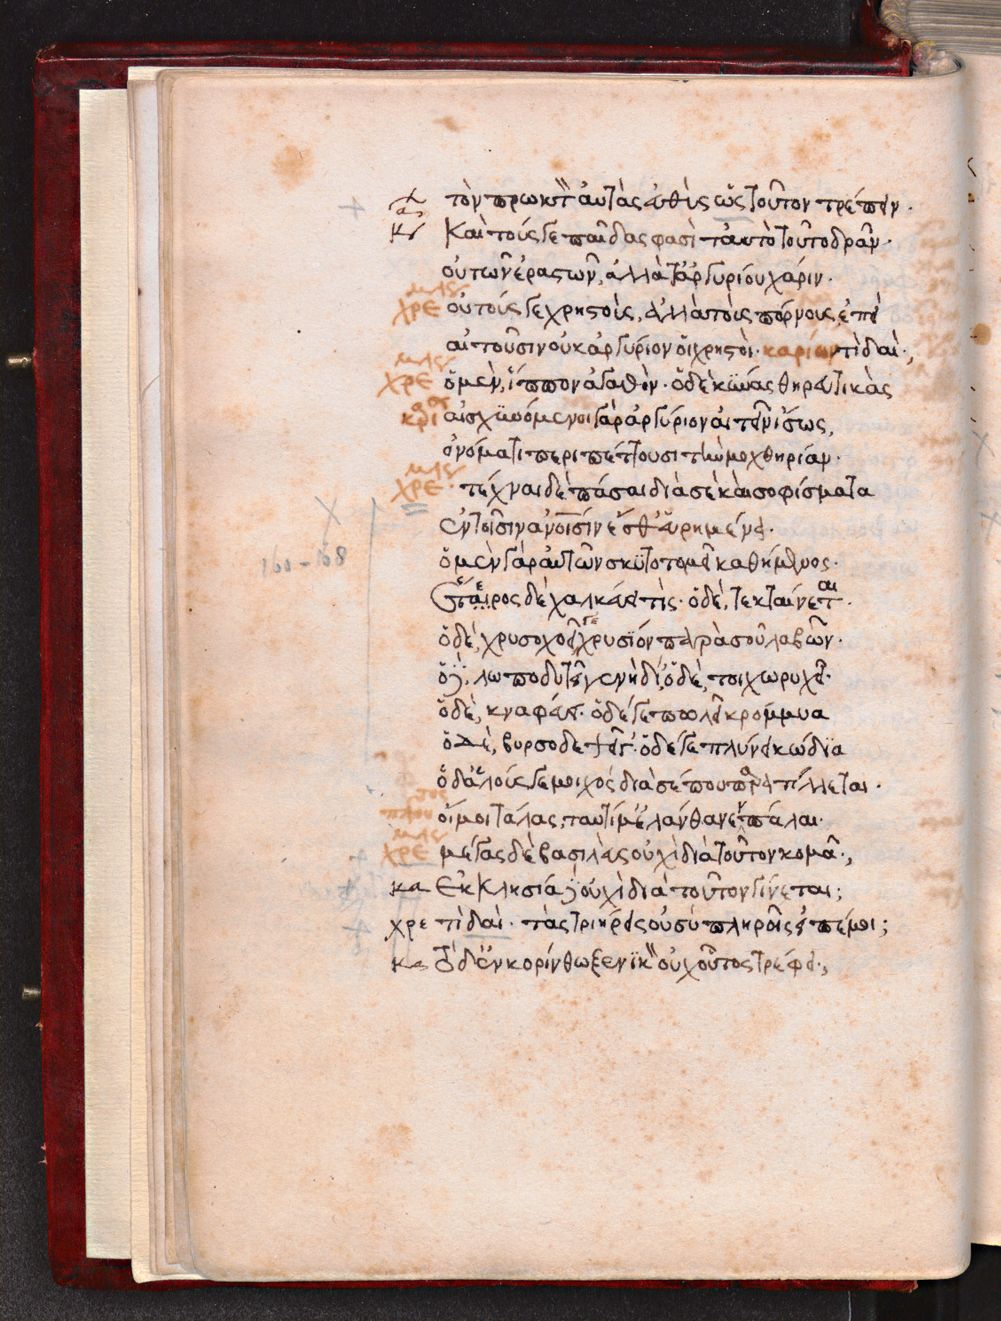 τὸν πρωκτὸν αὐτὰς εὐθὺς ὡς τοῦτον τρέπειν·
κα Καὶ τούς γε παῖδας φασὶ ταυτὸ τοῦτο δρᾶν·
οὐ τῶν ἐραστῶν, ἀλλὰ τἀργυρίου χάριν·
χρε οὐ τούς γε χρηστοὺς, ἀλλὰ τοὺς πόρνους, ἐπεὶ
αἰτοῦσιν οὐκ ἀργύριον οἱ χρηστοί· καρίων τὶ δαί·,
χρε ὁ μὲν, ἵππον ἀγαθόν· ὁ δὲ κύνας θηρευτικὰς
καρι αἰσχυνόμενοι γὰρ ἀργύριον αἰτεῖν ἴσως,
ὀνόματι περιπέττουσι τὴν μοχθηρίαν·
χρε τέχναι δὲ πᾶσαι διὰ σὲ καὶ σοφίσματα
ἐν τοῖσιν ἀνοισίν ἐσθ' εὑρημένα·
ὁ μὲν γὰρ αὐτῶν σκυτοτομεῖ καθήμενος·
ἕτερος δὲ χαλκεύει τὶς· ὁ δὲ, τεκταίνεται·
ὁ δὲ, χρυσοχοεῖ γε χρυσίον παρὰ σοῦ λαβών·
ὁ δὲ, λωποδυτεῖ γε νὴ δί', ὁ δὲ, τοιχωρυχεῖ·
ὁ δὲ, κναφεύει· ὁ δέ γε πωλεῖ κρομμυα
ὁ δὲ, βυρσοδεψεῖ γ'· ὁ δέ γε πλύνει κώδια
ὁ δ' ἁλούς γε μοιχὸς διὰ σέ που παρατίλλεται·
πλου οἴμοι τάλας, ταυτί μ' ἐλάνθανεν πάλαι·
χρε μέγας δὲ βασιλεὺς οὐχὶ διὰ τοῦτον κομᾶ·,
κα Ἐκκλησία δ' οὐχὶ διὰ τοῦτον γίνεται;
χρε τὶ δαί· τὰς τριήρεις οὐ σὺ πληροῖς εἰπέ μοι;
κα Τὸ δ' ἐν κορίνθω ξενικὸν οὐχ οὗτος τρέφει·,